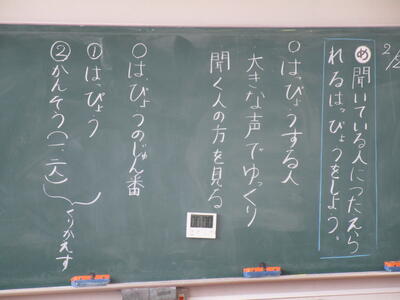 2/2
め 聞いている人につたえら
れるはっぴょうをしよう。
○はっぴょうする人
大きな声でゆっくり
聞く人の方を見る
○はっぴょうのじゅん番
①はっぴょう
②かんそう(一、二人)
くりかえす